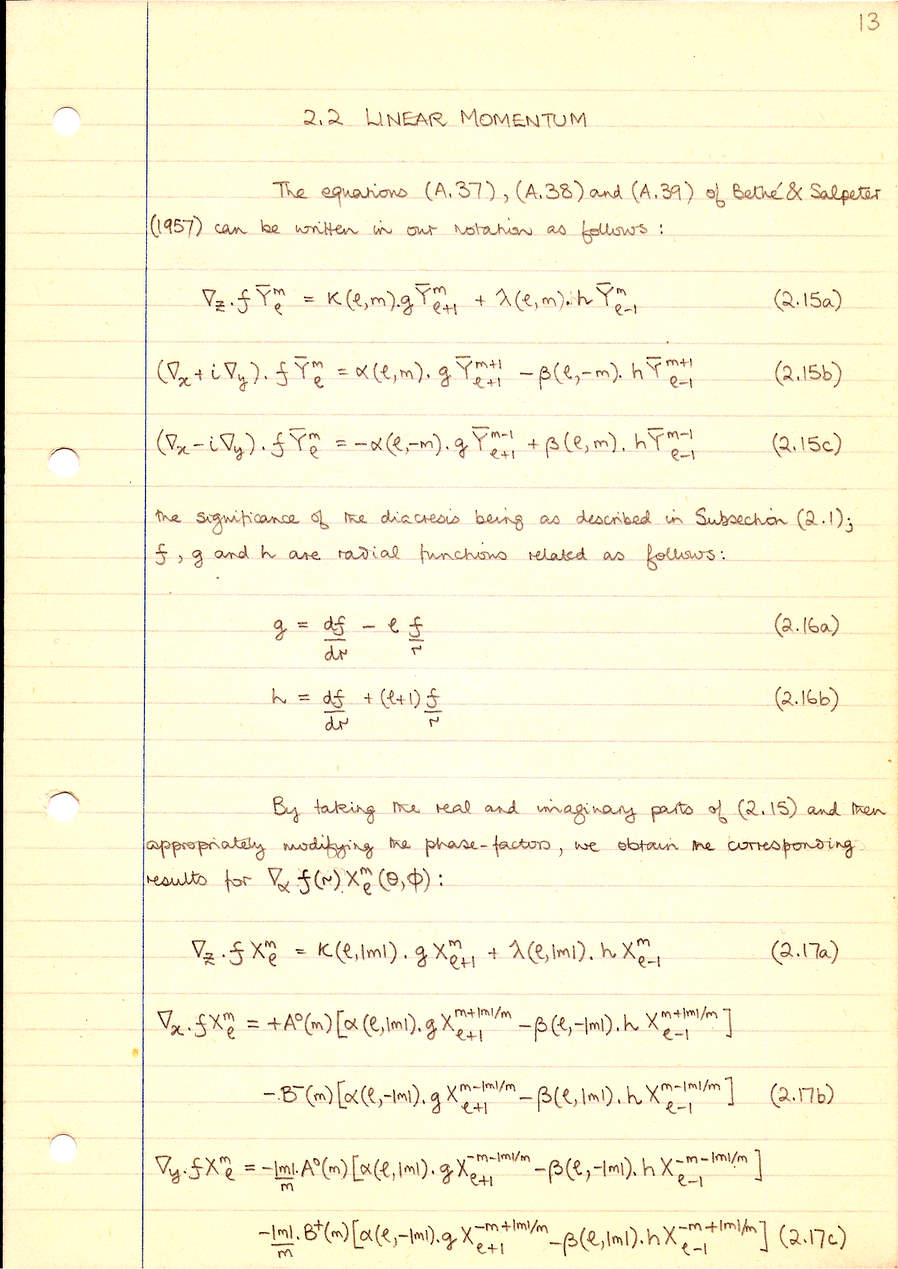 13
2.2 LINEAR MOMENTUM
The equations (A.37), (A.38) and (A.39) of Bethé & Salpeter
(1957) can be written in our notation as follows:
∇_z . f Ȳ_ℓ^m = K(ℓ,m).g Ȳ_{ℓ+1}^m + λ(ℓ,m). h Ȳ_{ℓ-1}^m (2.15a)
(∇_x + i∇_y). f Ȳ_ℓ^m = α(ℓ,m). g Ȳ_{ℓ+1}^{m+1} - β(ℓ,-m). h Ȳ_{ℓ-1}^{m+1} (2.15b)
(∇_x - i∇_y). f Ȳ_ℓ^m = -α(ℓ,-m). g Ȳ_{ℓ+1}^{m-1} + β(ℓ,m). h Ȳ_{ℓ-1}^{m-1} (2.15c)
the significance of the diacresis being as described in Subsection (2.1);
f, g and h are radial functions related as follows:
g = df/dr - ℓ f/r (2.16a)
h = df/dr + (ℓ+1) f/r (2.16b)
By taking the real and imaginary parts of (2.15) and then
appropriately modifying the phase-factors, we obtain the corresponding
results for ∇_α f(r) X_ℓ^m (θ,ϕ):
∇_z . f X_ℓ^m = K(ℓ,|m|). g X_{ℓ+1}^m + λ(ℓ,|m|). h X_{ℓ-1}^m (2.17a)
∇_x . f X_ℓ^m = +A°(m)[α(ℓ,|m|). g X_{ℓ+1}^{m+|m|/m} - β(ℓ,-|m|). h X_{ℓ-1}^{m+|m|/m}]
-B⁻(m)[α(ℓ,-|m|). g X_{ℓ+1}^{m-|m|/m} - β(ℓ,|m|). h X_{ℓ-1}^{m-|m|/m}] (2.17b)
∇_y . f X_ℓ^m = -|m|/m . A°(m)[α(ℓ,|m|). g X_{ℓ+1}^{-m-|m|/m} - β(ℓ,-|m|). h X_{ℓ-1}^{-m-|m|/m}]
-|m|/m . B⁺(m)[α(ℓ,-|m|). g X_{ℓ+1}^{-m+|m|/m} - β(ℓ,|m|). h X_{ℓ-1}^{-m+|m|/m}] (2.17c)